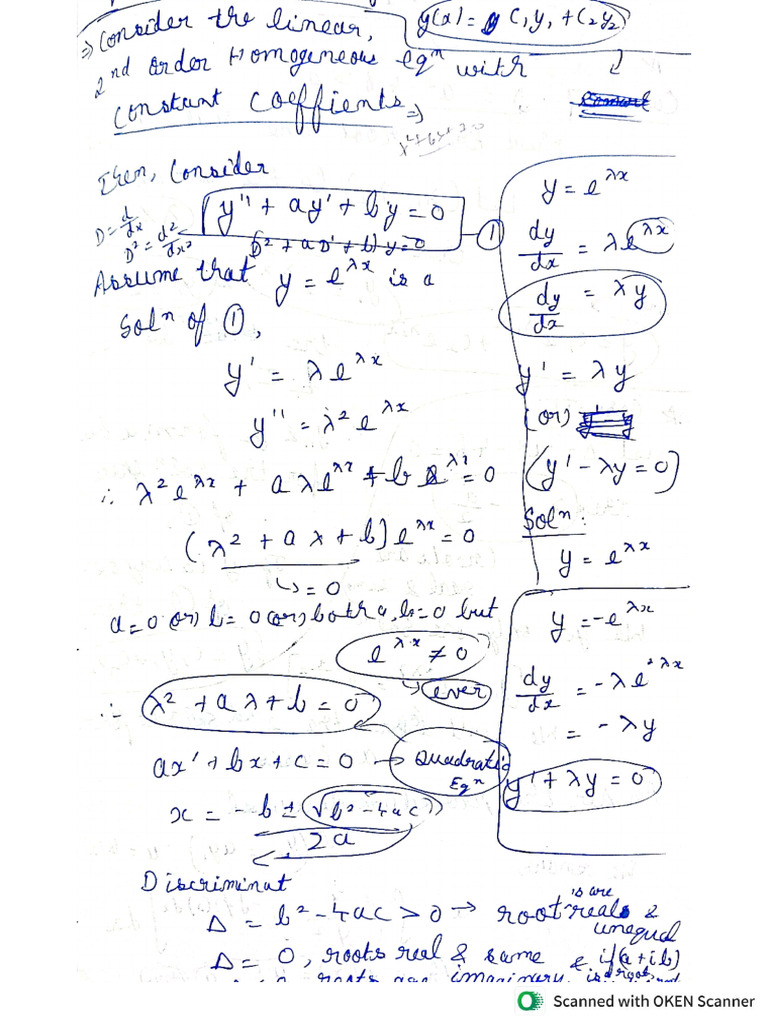 ⇒ Consider the linear,
y(x) = C₁y₁ + C₂y₂
2nd order Homogeneous eqⁿ with
Constant Coeffients ⇒
Then, Consider
D = d/dx
D² = d²/dx²
y'' + ay' + by = 0 — ①
Assume that y = e^λx is a
Solⁿ of ①,
y' = λe^λx
y'' = λ²e^λx
∴ λ²e^λx + aλe^λx + b e^λx = 0
(λ² + aλ + b) e^λx = 0
↳ = 0
a=0 (or) b=0 (or) both a, b=0 but
e^λx ≠ 0
→ ever
∴ λ² + aλ + b = 0
ax' + bx + c = 0 → Quadratic Eqⁿ
x = -b ± √(b²-4ac)
2a
Discriminat
Δ = b²-4ac > 0 → roots is are real &
unequal
Δ = 0, roots real & same & if (a+ib)
roots are imaginary is
y = e^λx
dy/dx = λe^λx
dy/dx = λy
y' = λy
(or)
(y' - λy = 0)
Solⁿ:
y = e^λx
y = -e^λx
dy/dx = -λe^λx
= -λy
y' + λy = 0
Scanned with OKEN Scanner